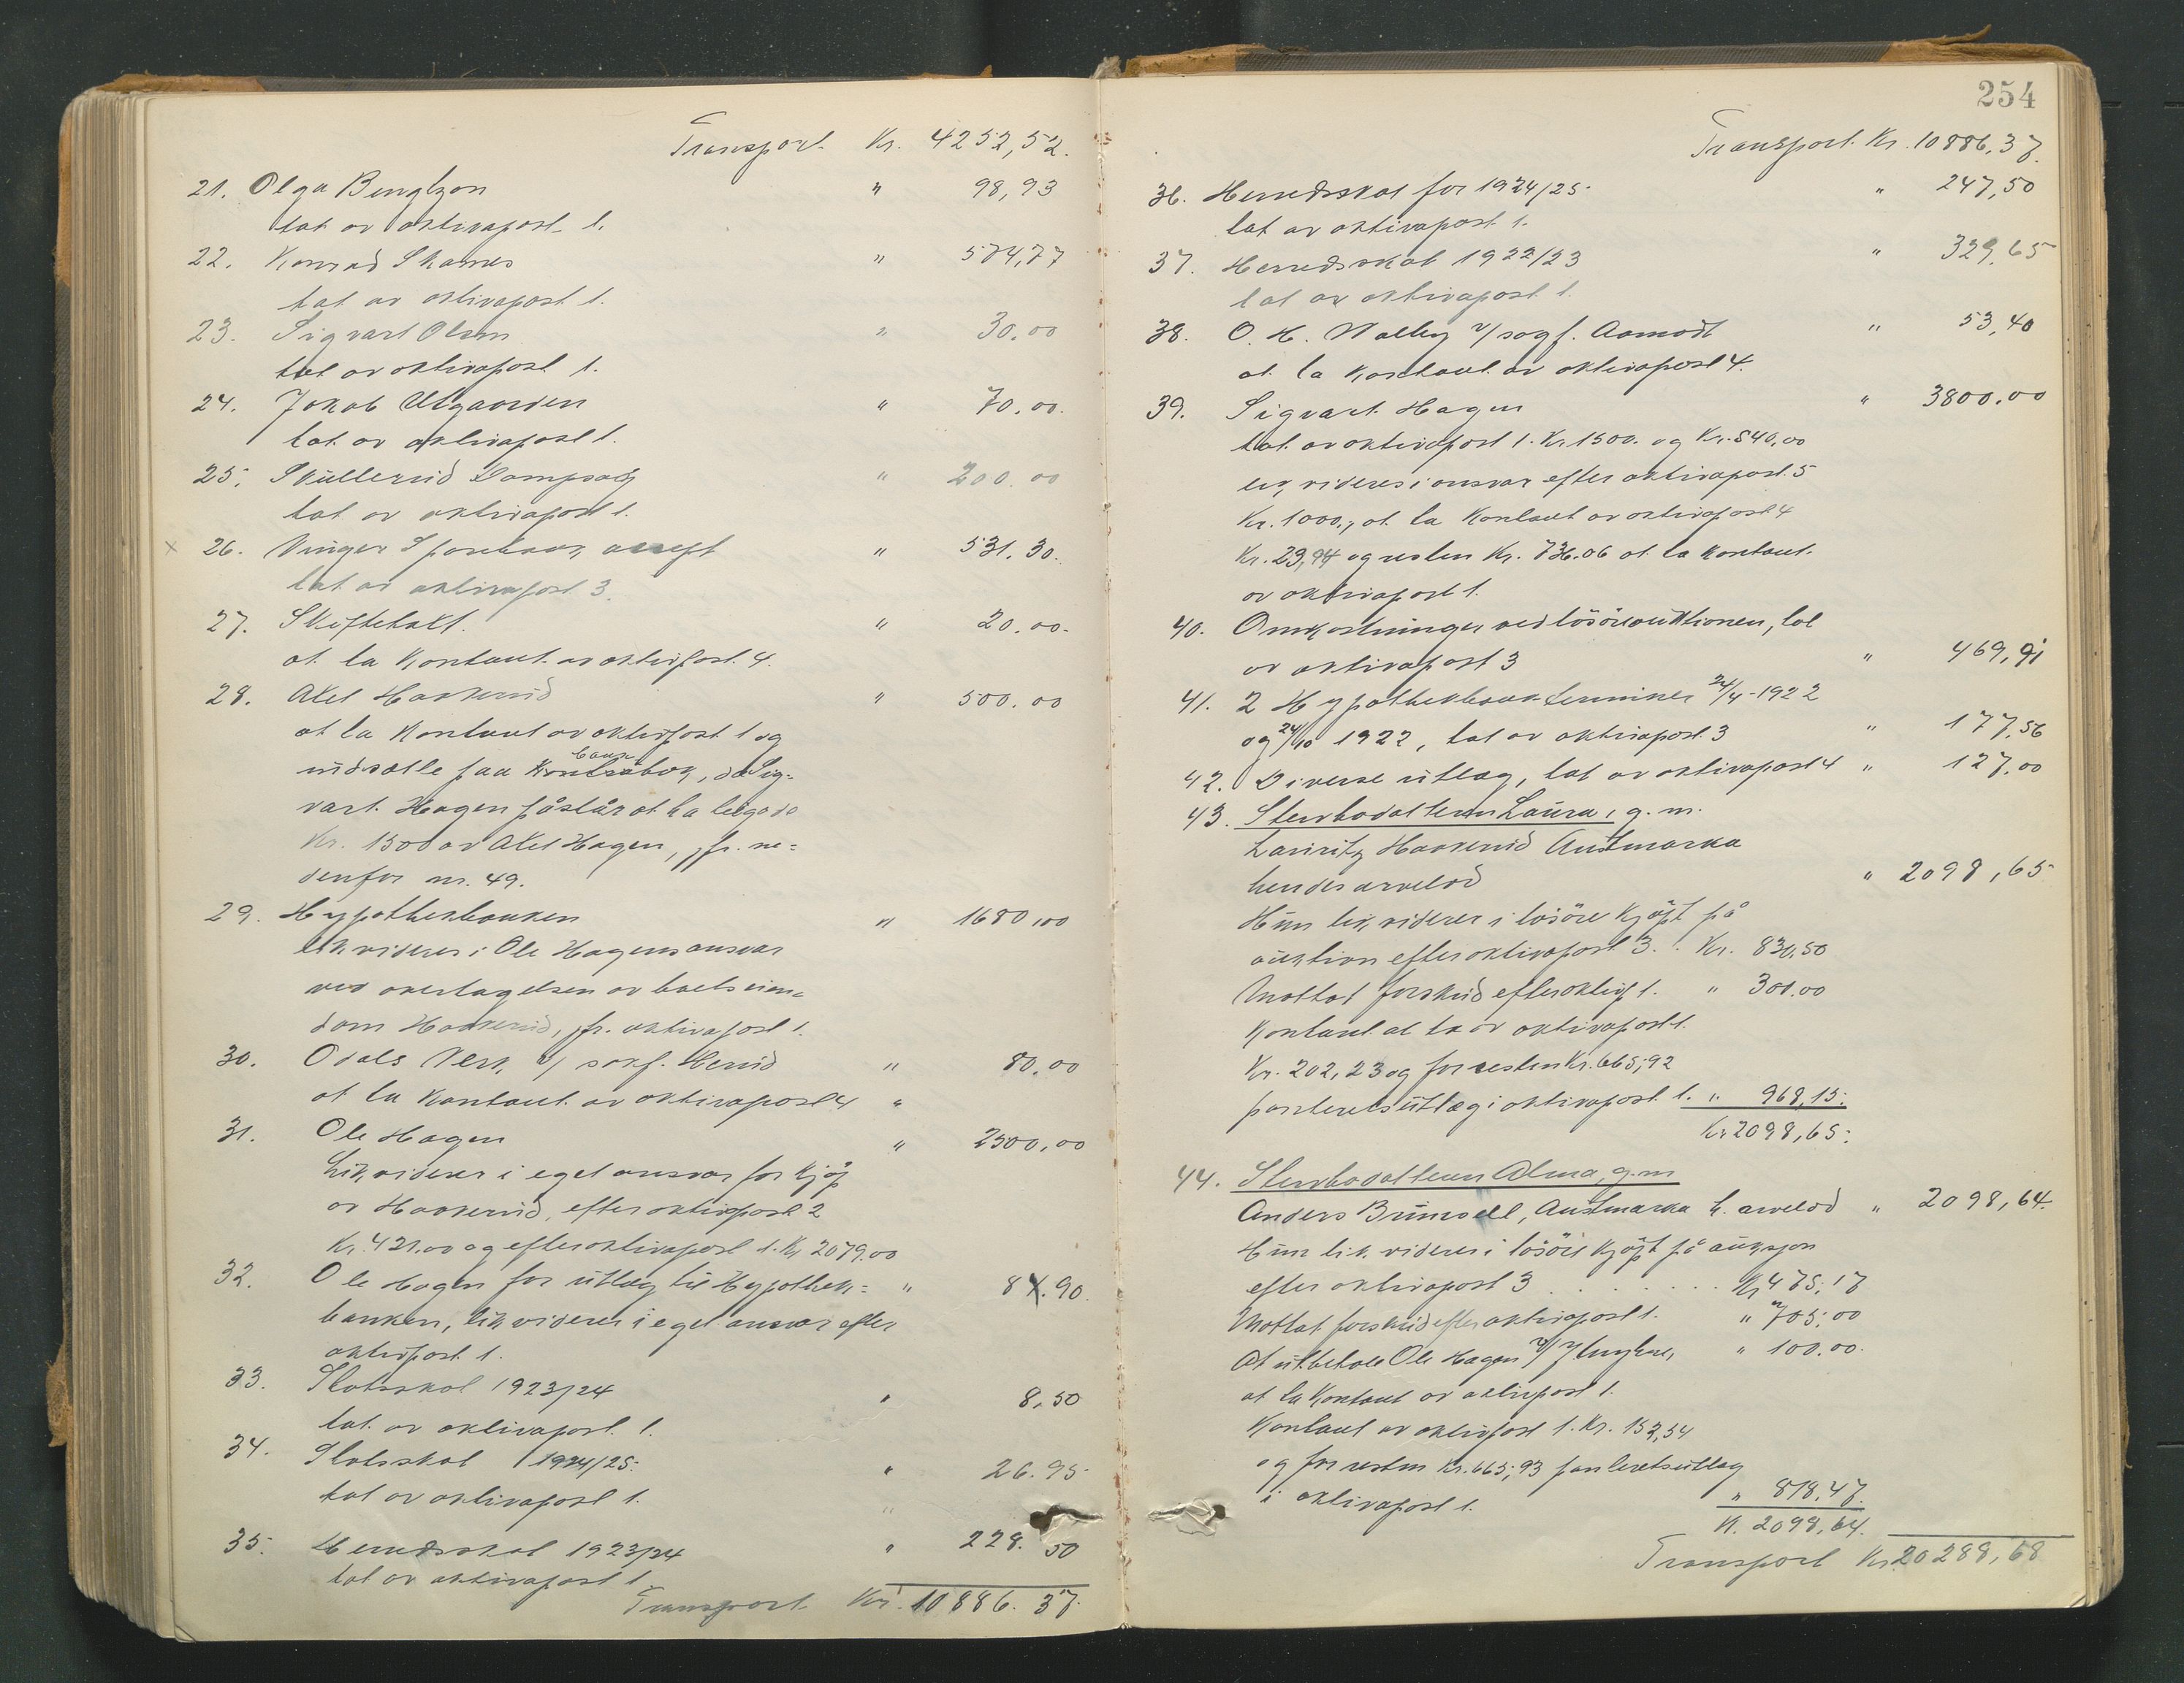 Transport Kr. 4252,52.
21. Olga Bengtzon " 98,93
tat av aktivapost 1.
22. Konrad Skarnes " 574,77
tat av aktivapost 1.
23. Sigvart Olsen " 30.00
tat av aktivapost 1.
24. Jakob Utgaarden " 70.00.
tat av aktivapost 1.
25. Skullerud Dampsag " 200.00
tat av aktivapost 1.
x 26. Vinger Sparebank, aksept " 531.30.
tat av aktivapost 3.
27. Skiftetakt. " 20.00.
at ta kontant av aktivpost 4.
28. Axel Haakerud " 500.00
at ta kontant av aktivpost 1 og
indsætte paa bankbok, da Sig=
vart Hagen påstår at ha tilgode
Kr. 1500 av Axel Hagen, jfr. ne=
denfor nr. 49.
29. Hypothekbanken " 1680,00
likvideres i Ole Hagens ansvar
ved overtagelsen av boets eien=
dom Haakerud, jfr. aktivapost 1.
30. Odals Verk v/ sakf. Herud " 80.00
at ta kontant av aktivapost 4 "
31. Ole Hagen " 2500,00
Likviderer i eget ansvar for kjøp
av Haakerud, efter aktivpost 2
Kr. 421.00 og efter aktivapost 1. Kr 2079.00
32. Ole Hagen for utlæg til Hypothek= " 84.90.
banken, likviderer i eget ansvar efter
aktivpost 1.
33. Statsskat 1923/24 " 8,50
tat av aktivapost 1.
34. Statsskat 1924/25. " 26.95
tat av aktivapost 1.
35. Herredsskat 1923/24 " 228.50
tat av aktivapost 1
Transport Kr. 10886.37.
254
Transport Kr. 10886,37.
36. Herredsskat for 1924/25 " 247,50
tat av aktivapost 1.
37. Herredsskat 1922/23 " 329,65
tat av aktivapost 1.
38. O. H. Walby v/ sagf. Aamodt " 53,40
at ta kontant av aktivapost 4.
39. Sigvart Hagen " 3800.00
tat av aktivapost 1. Kr 1500. og Kr. 540,00
likvideres i ansvar efter aktivapost 5
Kr. 1000,, at ta kontant av aktivapost 4
Kr. 23,94 og resten Kr. 736.06 at ta kontant
av aktivapost 1.
40. Omkostninger ved løsøreauktionen, tat
av aktivapost 3 " 469,91
41. 2 Hypothekbank terminer 24/4-1922
og 24/10 1922, tat av aktivapost 3 " 177,56
42. Diverse utlæg, tat av aktivapost 4 " 127,00
43. Stervbodatteren Laura, g. m.
Lauritz Haakerud Austmarka
hendes arvelod " 2098,65
Hun likviderer i løsøre kjøpt på
auktion efter aktivapost 3. . Kr. 830,50
Mottat forskud efter aktivp. 1. " 300.00
Kontant at ta av aktivapost 1.
Kr. 202,23 og for resten Kr. 665,92
panteretsutlæg i aktivapost 1. " 968,15.
Kr 2098,65.
44. Stervbodatteren Alma, g. m
Anders Brunsell, Austmarka h. arvelod " 2098,64.
Hun likviderer i løsøre kjøpt på auksjon
efter aktivapost 3 . . . . . . Kr 475,17
Mottat forskud efter aktivapost 1. " 705,00
At utbetale Ole Hagen " 100.00.
at ta kontant av aktivpost 1.
Kontant av aktivpost 1. Kr. 152,54
og for resten Kr. 665,93 panteretsutlæg
i aktivapost 1. " 818,47.
Kr. 2098,64.
Transport Kr. 20288,68